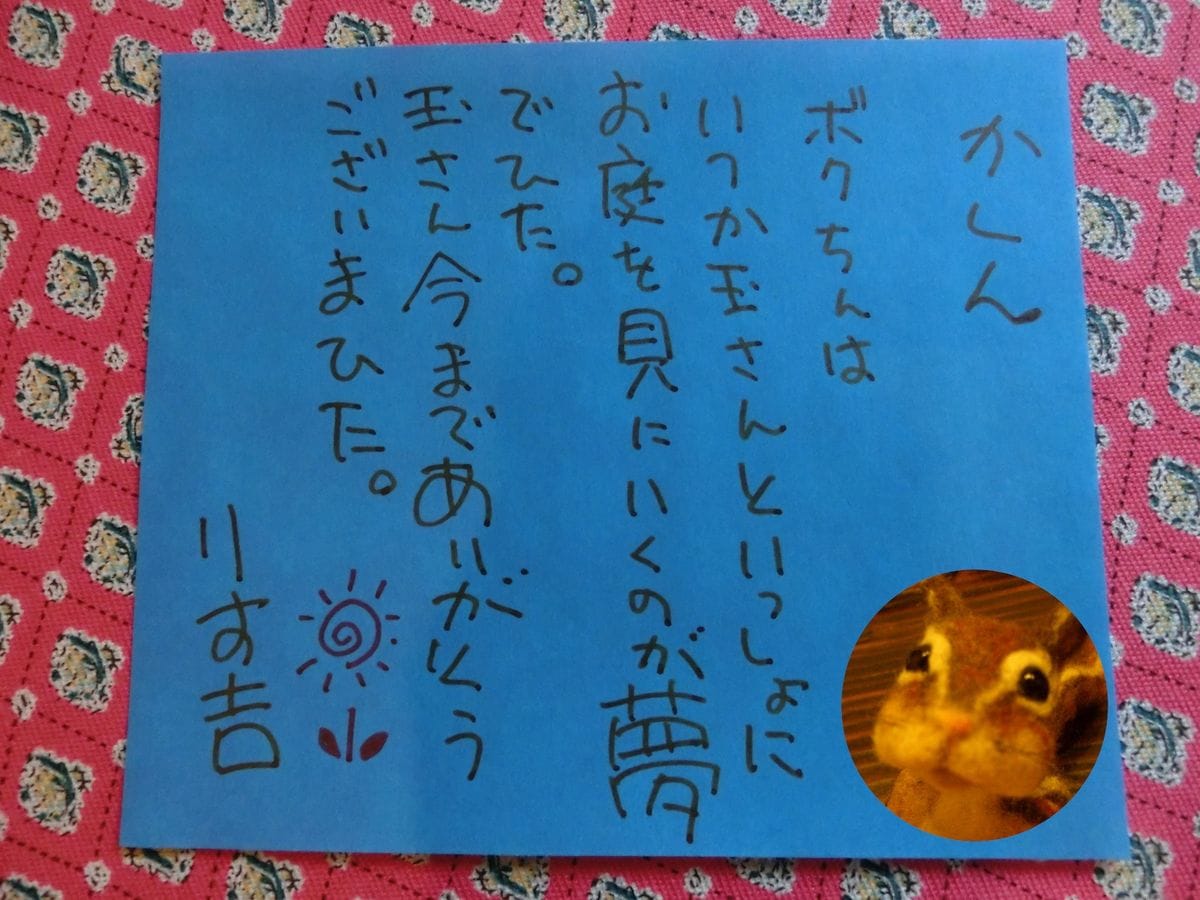 かしん
ボクちんは
いつか玉さんといっしょに
お庭を見にいくのが夢
でひた。
玉さん今まであいがとう
ございまひた。
りす吉